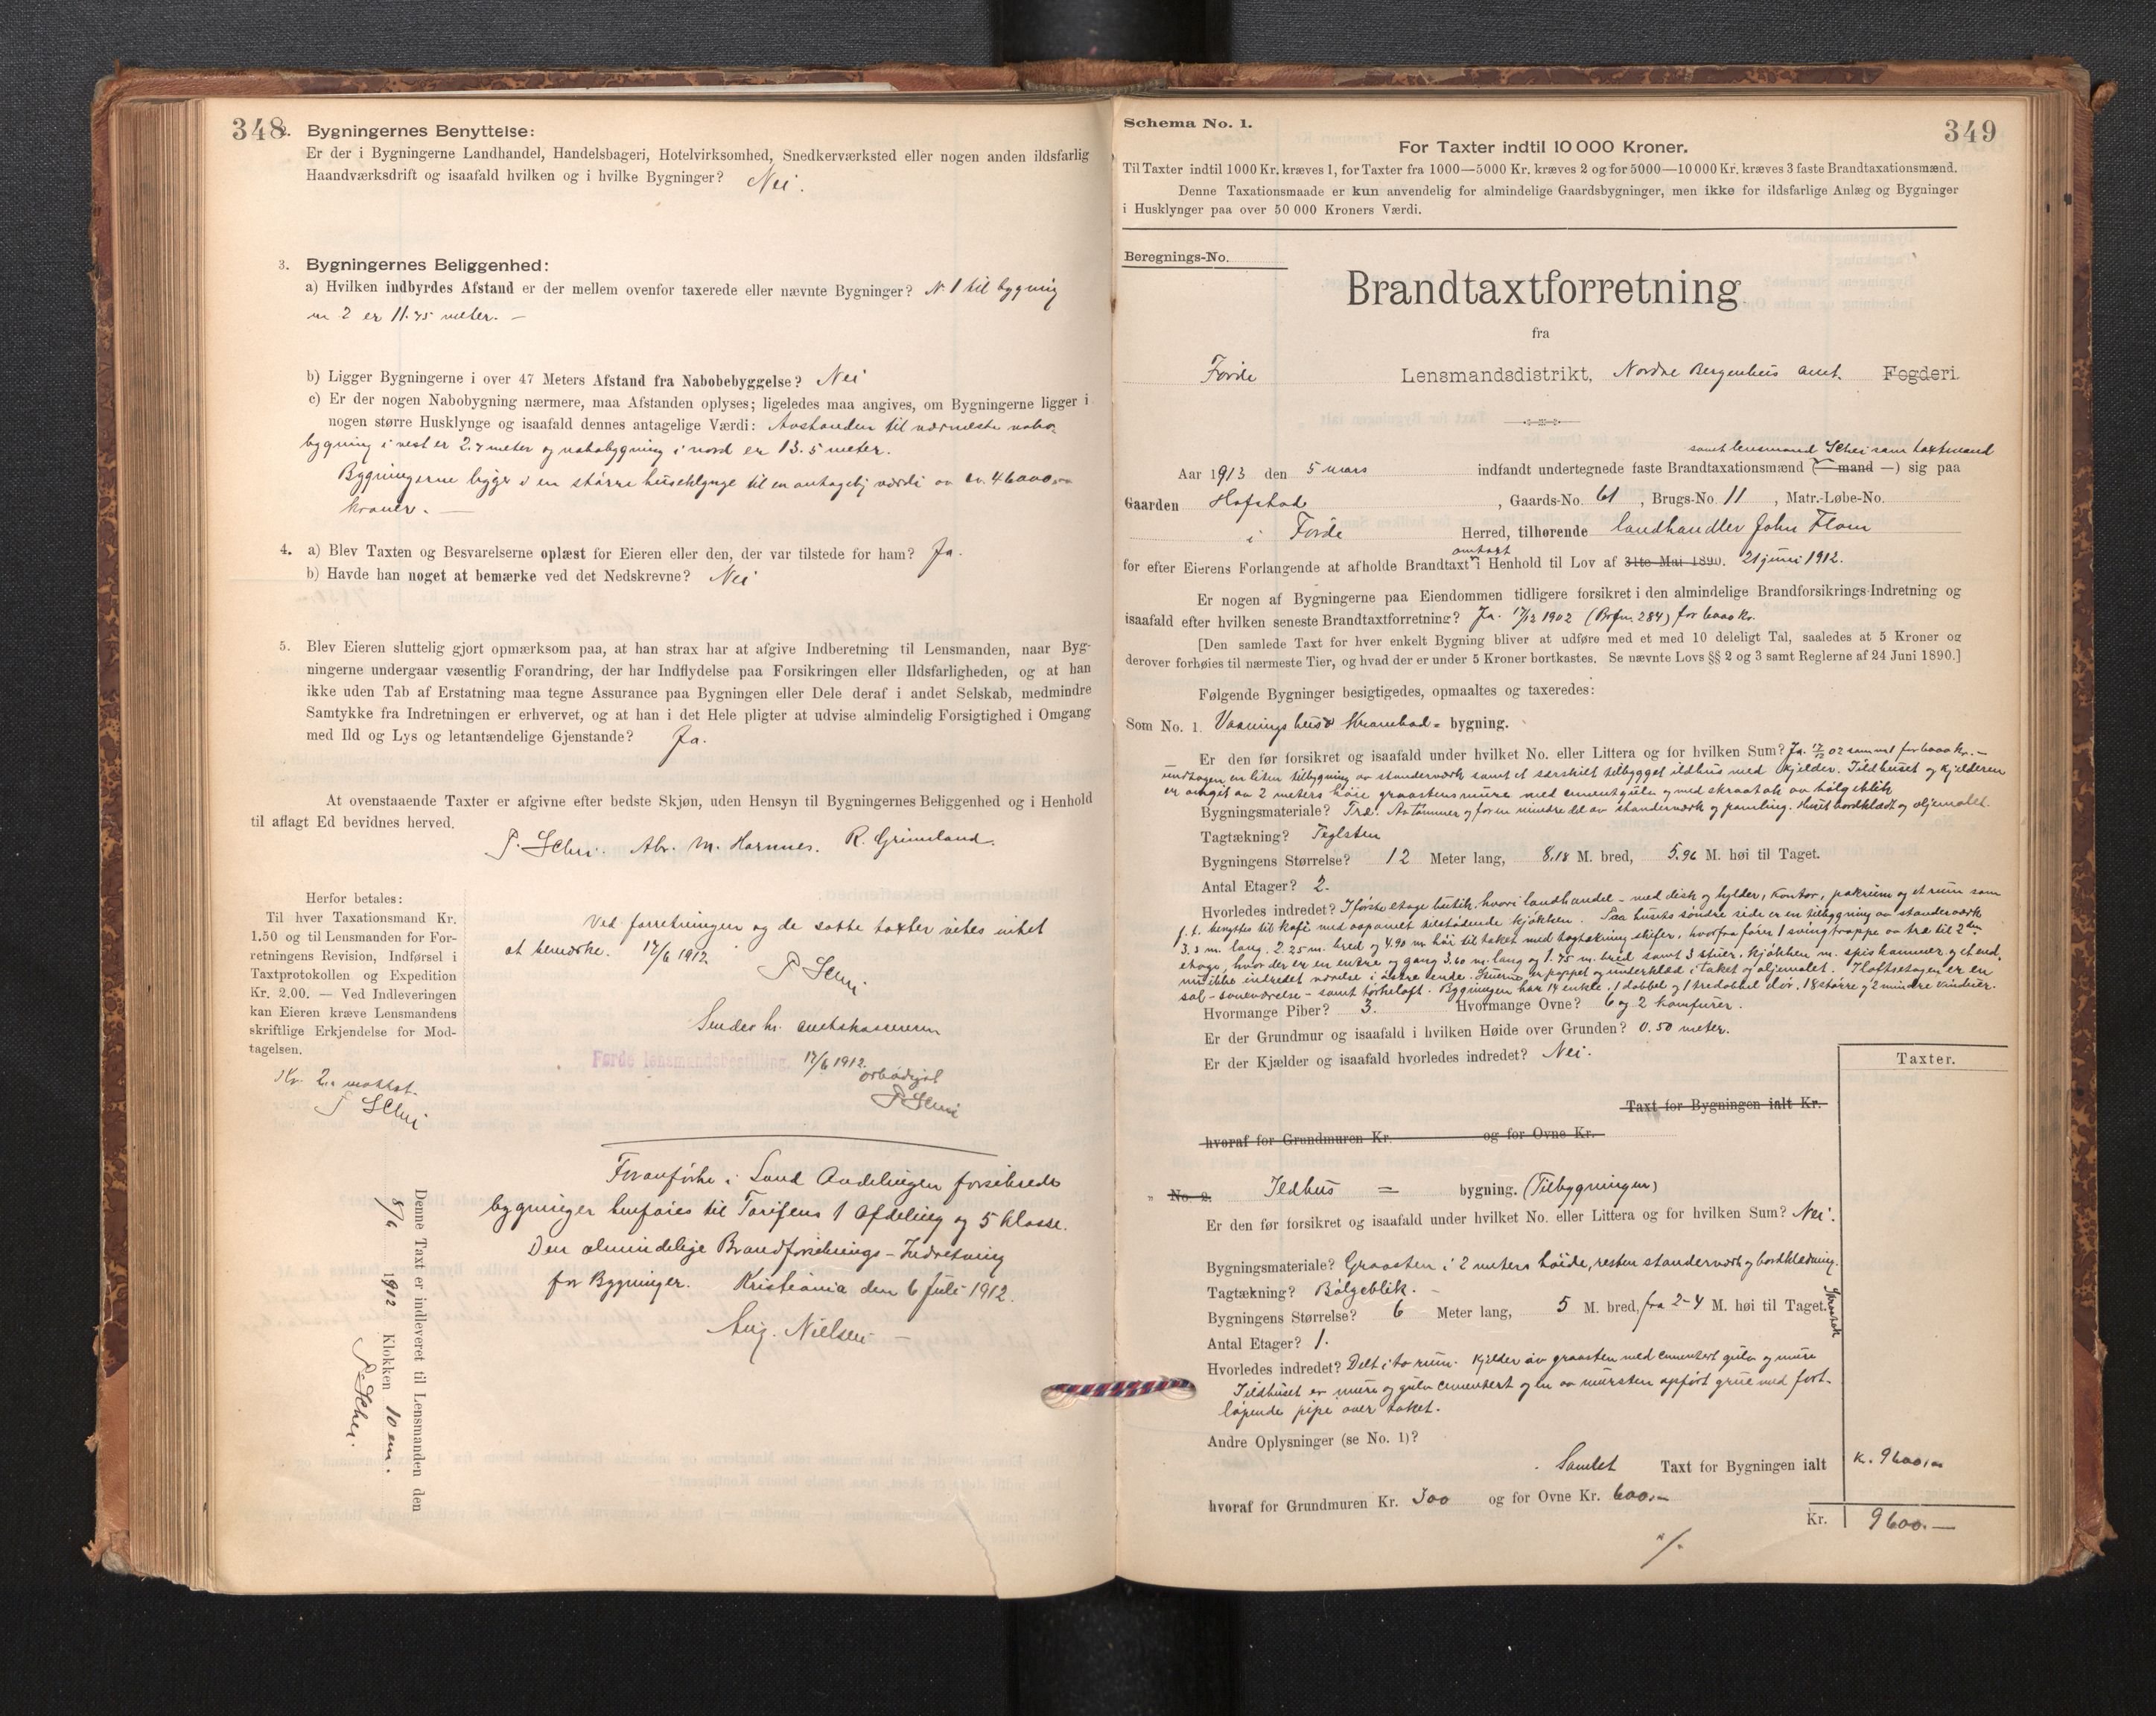 348
2. Bygningernes Benyttelse:
Er der i Bygningerne Landhandel, Handelsbageri, Hotelvirksomhed, Snedkerværksted eller nogen anden ildsfarlig
Haandværksdrift og isaafald hvilken og i hvilke Bygninger? Nei.
3. Bygningernes Beliggenhed:
a) Hvilken indbyrdes Afstand er der mellem ovenfor taxerede eller nævnte Bygninger? N. 1 til bygning
nr 2 er 11.75 meter. –
b) Ligger Bygningerne i over 47 Meters Afstand fra Nabobebyggelse? Nei
c) Er der nogen Nabobygning nærmere, maa Afstanden oplyses; ligeledes maa angives, om Bygningerne ligger i
nogen større Husklynge og isaafald dennes antagelige Værdi: Avstanden til nærmeste nabo-
bygning i vest er 2.7 meter og nabobygning i nord er 13.5 meter.
Bygningerne ligger i en större huseklynge til en antagelig værdi av ca. 46000,00
kroner. —
4. a) Blev Taxten og Besvarelserne oplæst for Eieren eller den, der var tilstede for ham? Ja.
b) Havde han noget at bemærke ved det Nedskrevne? Nei
5. Blev Eieren sluttelig gjort opmærksom paa, at han strax har at afgive Indberetning til Lensmanden, naar Byg-
ningerne undergaar væsentlig Forandring, der har Indflydelse paa Forsikringen eller Ildsfarligheden, og at han
ikke uden Tab af Erstatning maa tegne Assurance paa Bygningen eller Dele deraf i andet Selskab, medmindre
Samtykke fra Indretningen er erhvervet, og at han i det Hele pligter at udvise almindelig Forsigtighed i Omgang
med Ild og Lys og letantændelige Gjenstande? Ja.
At ovenstaaende Taxter er afgivne efter bedste Skjøn, uden Hensyn til Bygningernes Beliggenhed og i Henhold
til aflagt Ed bevidnes herved.
P. Schei. Abr. M. Hornnes. R. Grimeland.
Herfor betales:
Til hver Taxationsmand Kr.
1.50 og til Lensmanden for For-
retningens Revision, Indførsel i
Taxtprotokollen og Expedition
Kr. 2.00. — Ved Indleveringen
kan Eieren kræve Lensmandens
skriftlige Erkjendelse for Mod-
tagelsen.
Kr. 2.- mottat.
P Schei
Denne Taxt er indleveret til Lensmanden den
8/6 1912 Klokken 10 em.
P. Schei.
Ved forretningen og de satte taxter vites intet
at bemærke. 17/6 1912
P Schei
Sendes hr. amtskassereren
Førde lensmandsbestilling, 17/6 1912.
ærbødigst
P Schei
Foranførte i Land Avdelingen forsikrede
bygninger henføies til Tarifens 1 Afdeling og 5 klasse.
Den almindelige Brandforsikrings-Indretning
for Bygninger. Kristiania den 6 Juli 1912.
Aug. Nielsen –
Schema No. 1.
349
For Taxter indtil 10 000 Kroner.
Til Taxter indtil 1000 Kr. kræves 1, for Taxter fra 1000—5000 Kr. kræves 2 og for 5000—10 000 Kr. kræves 3 faste Brandtaxationsmænd.
Denne Taxationsmaade er kun anvendelig for almindelige Gaardsbygninger, men ikke for ildsfarlige Anlæg og Bygninger
i Husklynger paa over 50 000 Kroners Værdi.
Beregnings-No.
Brandtaxtforretning
fra
Førde Lensmandsdistrikt, Nordre Bergenhus amt. Fogderi.
samt lensmand Schei som taxtmand
Aar 1913 den 5 mars indfandt undertegnede faste Brandtaxationsmænd (— mand —) sig paa
Gaarden Hofstad, Gaards-No. 61, Brugs-No. 11, Matr.-Løbe-No.
i Førde Herred, tilhørende landhandler John Flom
omtaxt
for efter Eierens Forlangende at afholde Brandtaxt i Henhold til Lov af 31te Mai 1890. 21 juni 1912.
Er nogen af Bygningerne paa Eiendommen tidligere forsikret i den almindelige Brandforsikrings-Indretning og
isaafald efter hvilken seneste Brandtaxtforretning? Ja. 17/12 1902 (Brfnr. 284) for 6000 kr.
[Den samlede Taxt for hver enkelt Bygning bliver at udføre med et med 10 deleligt Tal, saaledes at 5 Kroner og
derover forhøies til nærmeste Tier, og hvad der er under 5 Kroner bortkastes. Se nævnte Lovs §§ 2 og 3 samt Reglerne af 24 Juni 1890.]
Følgende Bygninger besigtigedes, opmaaltes og taxeredes:
Som No. 1. Vaaningshus & Krambod- bygning.
Er den før forsikret og isaafald under hvilket No. eller Littera og for hvilken Sum? Ja. 17/12 02 som nr 1 for 6000 kr. –
undtagen en liten tilbygning av standerværk samt et særskilt tilbygget ildhus med kjelder. Ildhuset og kjelderen
er omgit av 2 meters høie graastensmure med cementgulv og med skraatak av bølgeblik
Bygningsmateriale? Træ. Av tømmer og for en mindre del av standerværk og paneling. Huset bordklædt og oljemalet.
Tagtækning? Teglsten
Bygningens Størrelse? 12 Meter lang, 8.18 M. bred, 5.96 M. høi til Taget.
Antal Etager? 2.
Hvorledes indredet? I første etage butik hvori landhandel – med disk og hylder, kontor, pakrum og et rum som
f. t. benyttes til kafé med aapamet tilstødende kjøkken. Paa husets søndre side er en tilbygning av standerværk
3.3 m. lang. 2.25 m. bred og 4.90 m. høi til taket med tagtækning skifer, hvorfra fører 1 svingtrappe av træ til 2den
etage, hvor der er en entre og gang 3.60 m. lang og 1.75 m. bred samt 3 stuer, kjøkken m. spiskammer og et end-
nu ikke indredet værelse i østre ende. Stuerne er pappet og underklæd i taket og oljemalet. I loftsetagen er en
sal - soveværelse - samt tørkeloft. Bygningen har 14 enkle, 1 dobbel og 1 tredobbel dør, 18 større og 2 mindre vinduer.
Hvormange Piber? 3. Hvormange Ovne? 6 og 2 komfurer.
Er der Grundmur og isaafald i hvilken Høide over Grunden? 0.50 meter.
Er der Kjælder og isaafald hvorledes indredet? Nei.
Taxter.
Taxt for Bygningen ialt Kr.
hvoraf for Grundmuren Kr. og for Ovne Kr.
" No. 2. Ildhus = bygning. (Tilbygningen)
Er den før forsikret og isaafald under hvilket No. eller Littera og for hvilken Sum? Nei.
Bygningsmateriale? Graasten i 2 meters høide, resten standerværk og bordklædning.
Tagtækning? Bølgeblik. –
Bygningens Størrelse? 6 Meter lang, 5 M. bred, fra 2-4 M. høi til Taget. Skraatak
Antal Etager? 1.
Hvorledes indredet? Delt i to rum. Kjelder av graasten med cementert gulv og mure
I ildhuset er mure og gulv cementert og en av mursten opført grue med fort-
løpende pipe over taket.
Andre Oplysninger (se No. 1)?
Samlet Taxt for Bygningen ialt k. 9600,00
hvoraf for Grundmuren Kr. 300 og for Ovne Kr. 600.–
Kr. 9600.—